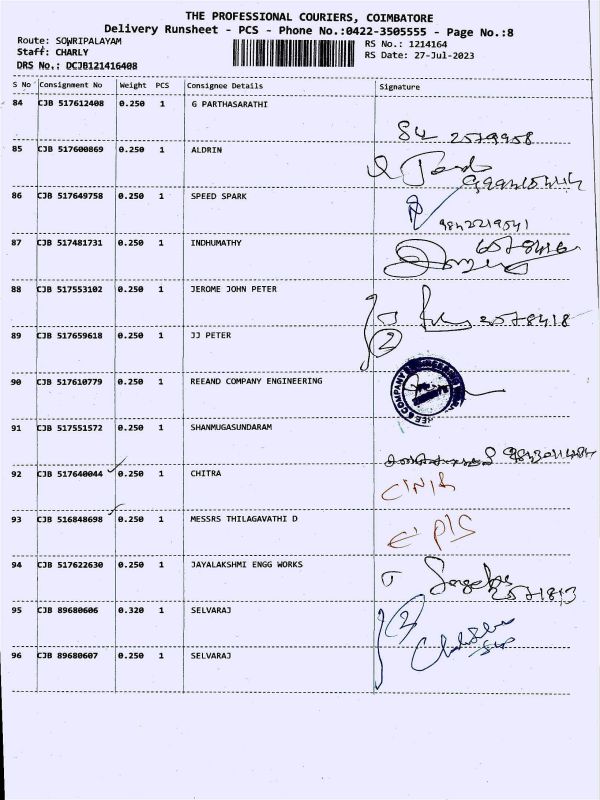 THE PROFESSIONAL COURIERS, COIMBATORE
Delivery Runsheet - PCS - Phone No.:0422-3505555 - Page No.:8
Route: SOWRIPALAYAM
Staff: CHARLY
DRS No.: DCJB121416408
RS No.: 1214164
RS Date: 27-Jul-2023
S No Consignment No Weight PCS Consignee Details Signature
84 CJB 517612408 0.250 1 G PARTHASARATHI
85 CJB 517600869 0.250 1 ALDRIN
86 CJB 517649758 0.250 1 SPEED SPARK
9842219541
87 CJB 517481731 0.250 1 INDHUMATHY
88 CJB 517553102 0.250 1 JEROME JOHN PETER
2578418
89 CJB 517659618 0.250 1 JJ PETER
2
90 CJB 517610779 0.250 1 REEAND COMPANY ENGINEERING
91 CJB 517551572 0.250 1 SHANMUGASUNDARAM
92 CJB 517640044 0.250 1 CHITRA
93 CJB 516848698 0.250 1 MESSRS THILAGAVATHI D
94 CJB 517622630 0.250 1 JAYALAKSHMI ENGG WORKS
95 CJB 89680606 0.320 1 SELVARAJ
2
96 CJB 89680607 0.250 1 SELVARAJ